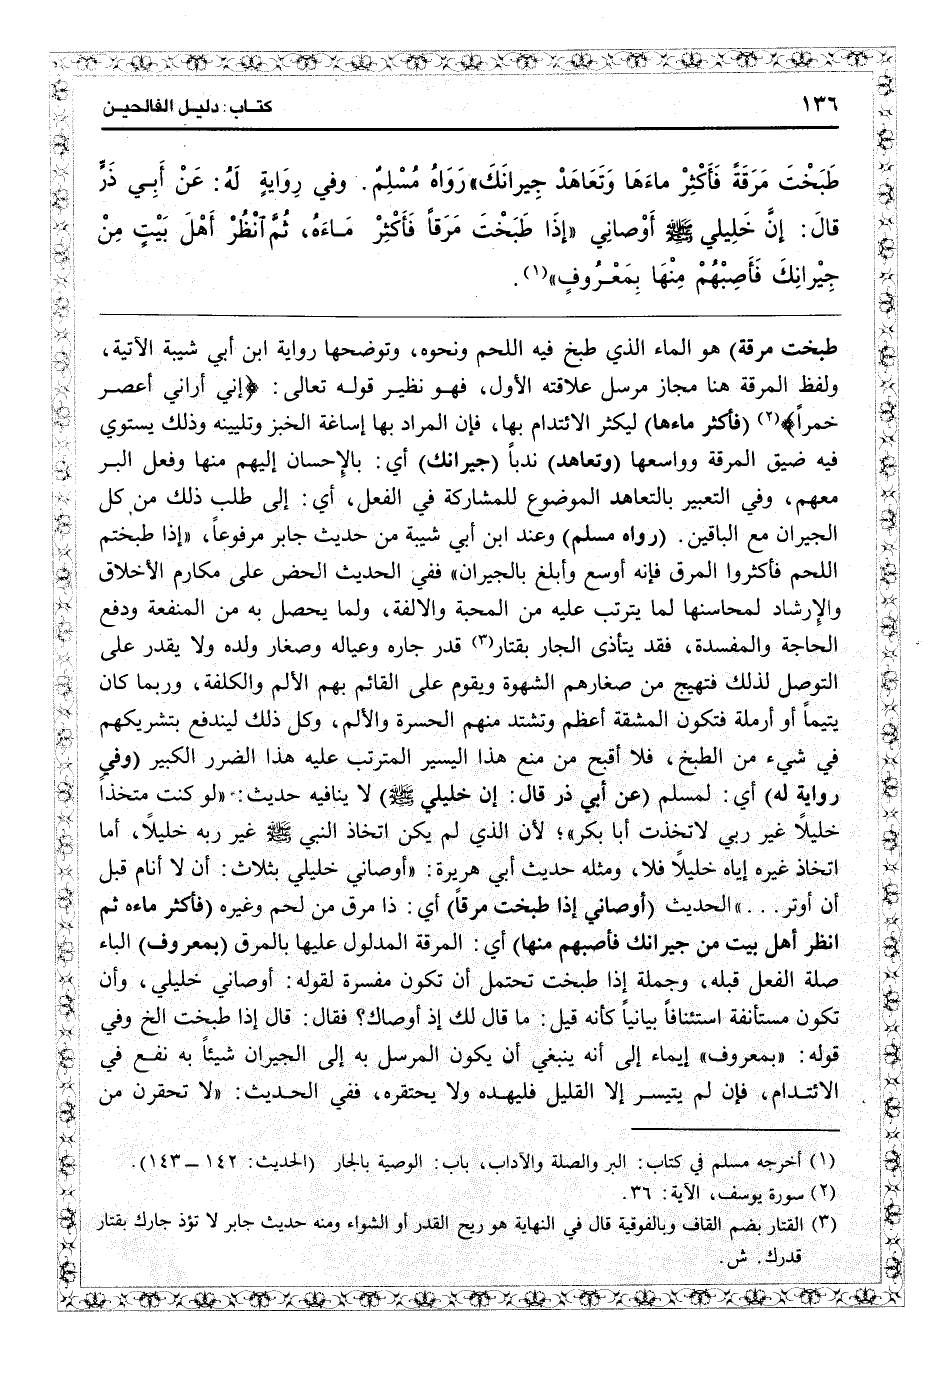 ١٣٦
كتاب: دليل الفالحين
طَبَخْتَ مَرَقَةً فَأَكْثِرْ ماءَهَا وَتَعَاهَدْ جِيرانَكَ» رَوَاهُ مُسْلِمٌ. وفي رِوايَةٍ لَهُ: عَنْ أَبِي ذَرٍّ
قالَ: إنَّ خَلِيلي ﷺ أَوْصاني «إذَا طَبَخْتَ مَرَقاً فَأَكْثِرْ مَاءَهُ، ثُمَّ ٱنْظُرْ أَهْلَ بَيْتٍ مِنْ
جِيْرانِكَ فَأَصِبْهُمْ مِنْهَا بِمَعْرُوفٍ»(١).
طبخت مرقة) هو الماء الذي طبخ فيه اللحم ونحوه، وتوضحها رواية ابن أبي شيبة الآتية،
ولفظ المرقة هنا مجاز مرسل علاقته الأول، فهو نظير قوله تعالى: ﴿إني أراني أعصر
خمراً﴾(٢) (فأكثر ماءها) ليكثر الائتدام بها، فإن المراد بها إساغة الخبز وتليينه وذلك يستوي
فيه ضيق المرقة وواسعها (وتعاهد) ندباً (جيرانك) أي: بالإحسان إليهم منها وفعل البر
معهم، وفي التعبير بالتعاهد الموضوع للمشاركة في الفعل، أي: إلى طلب ذلك من كل
الجيران مع الباقين. (رواه مسلم) وعند ابن أبي شيبة من حديث جابر مرفوعاً، «إذا طبختم
اللحم فأكثروا المرق فإنه أوسع وأبلغ بالجيران» ففي الحديث الحض على مكارم الأخلاق
والإرشاد لمحاسنها لما يترتب عليه من المحبة والالفة، ولما يحصل به من المنفعة ودفع
الحاجة والمفسدة، فقد يتأذى الجار بقتار(٣) قدر جاره وعياله وصغار ولده ولا يقدر على
التوصل لذلك فتهيج من صغارهم الشهوة ويقوم على القائم بهم الألم والكلفة، وربما كان
يتيماً أو أرملة فتكون المشقة أعظم وتشتد منهم الحسرة والألم، وكل ذلك ليندفع بتشريكهم
في شيء من الطبخ، فلا أقبح من منع هذا اليسير المترتب عليه هذا الضرر الكبير (وفي
رواية له) أي: لمسلم (عن أبي ذر قال: إن خليلي ﷺ) لا ينافيه حديث: «لو كنت متخذاً
خليلًا غير ربي لاتخذت أبا بكر»؛ لأن الذي لم يكن اتخاذ النبي ﷺ غير ربه خليلًا، أما
اتخاذ غيره إياه خليلًا فلا، ومثله حديث أبي هريرة: «أوصاني خليلي بثلاث: أن لا أنام قبل
أن أوتر...» الحديث (أوصاني إذا طبخت مرقاً) أي: ذا مرق من لحم وغيره (فأكثر ماءه ثم
انظر أهل بيت من جيرانك فأصبهم منها) أي: المرقة المدلول عليها بالمرق (بمعروف) الباء
صلة الفعل قبله، وجملة إذا طبخت تحتمل أن تكون مفسرة لقوله: أوصاني خليلي، وأن
تكون مستأنفة استئنافاً بيانياً كأنه قيل: ما قال لك إذ أوصاك؟ فقال: قال إذا طبخت الخ وفي
قوله: «بمعروف» إيماء إلى أنه ينبغي أن يكون المرسل به إلى الجيران شيئاً به نفع في
الائتدام، فإن لم يتيسر إلا القليل فليهده ولا يحتقره، ففي الحديث: «لا تحقرن من
(١) أخرجه مسلم في كتاب: البر والصلة والآداب، باب: الوصية بالجار (الحديث: ١٤٢ – ١٤٣).
(٢) سورة يوسف، الآية: ٣٦.
(٣) القتار بضم القاف وبالفوقية قال في النهاية هو ريح القدر أو الشواء ومنه حديث جابر لا تؤذ جارك بقتار
قدرك. ش.